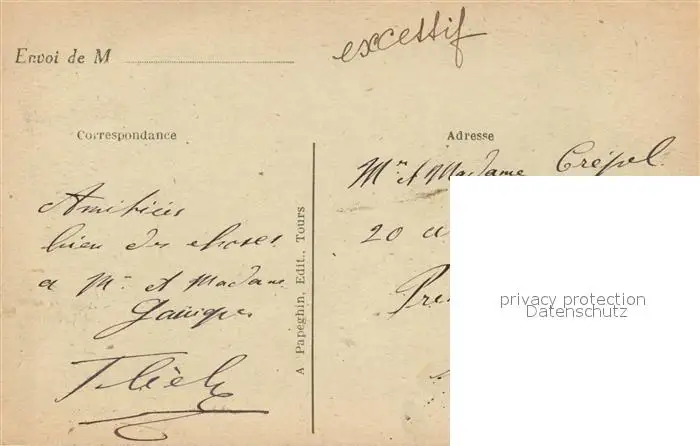 excessif
Envoi de M
Correspondance
Adresse
Mr et Madame Crépel
20 a
Pre
Amitiés
bien des choses
a Mr et Madame
A Papeghin, Edit., Tours
privacy protection
Datenschutz